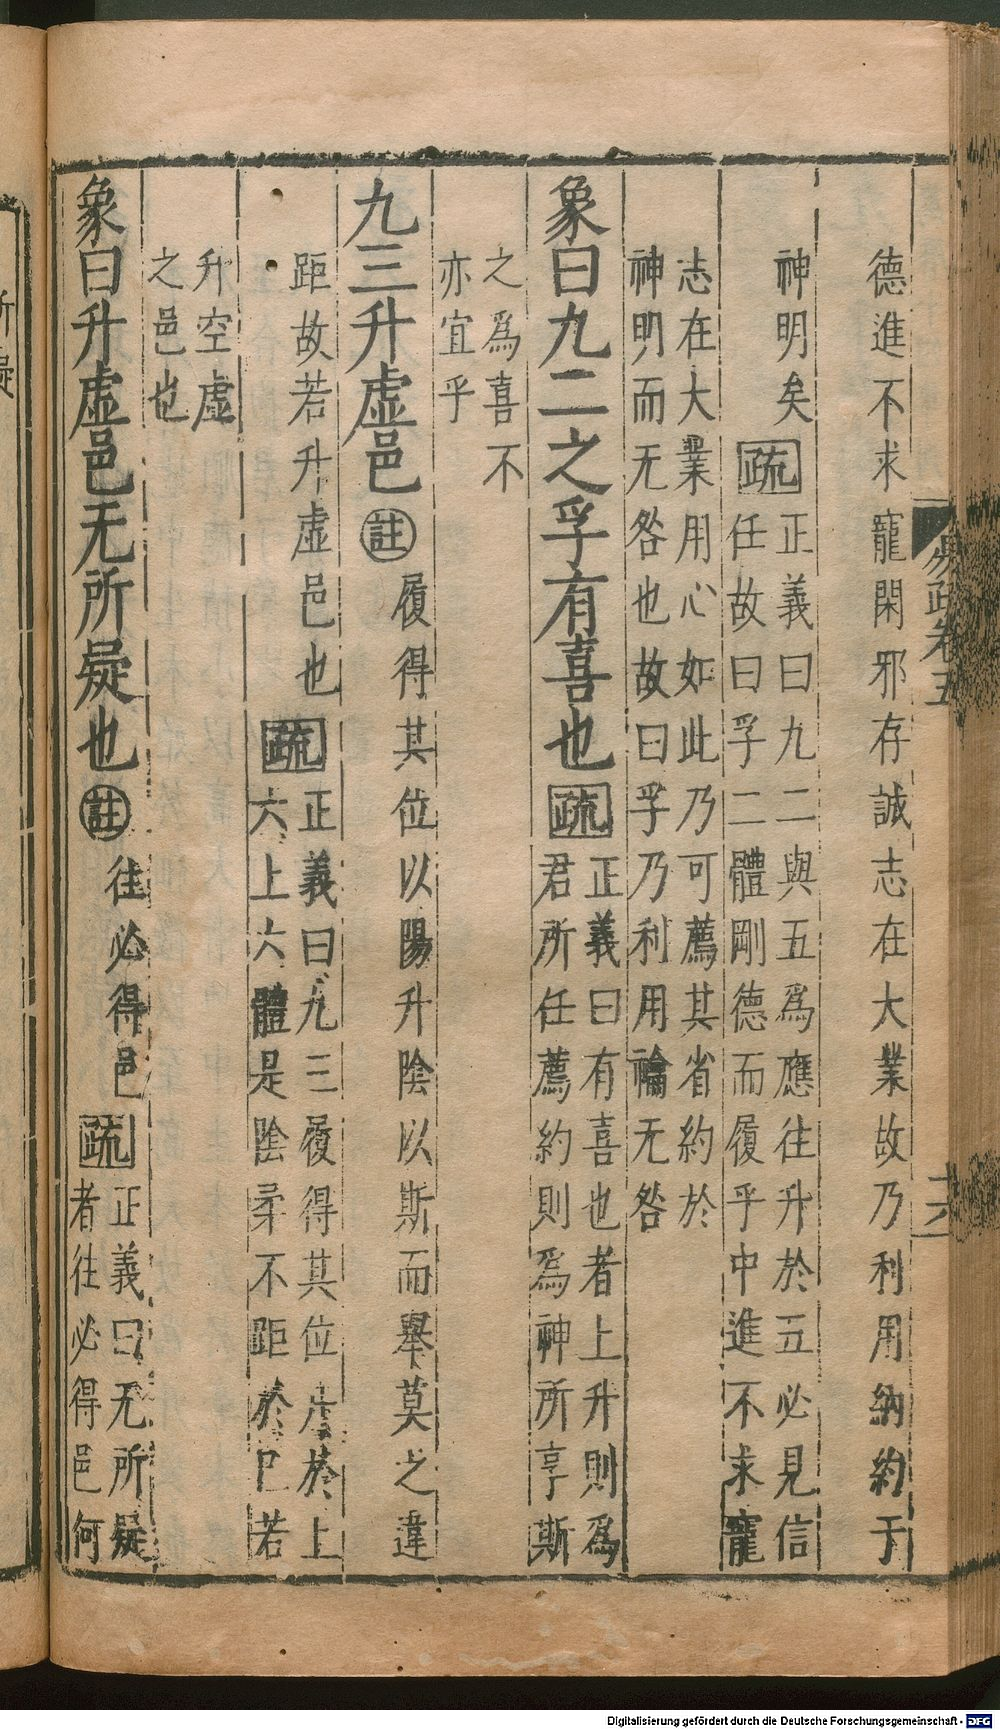 德進不求寵閑邪存誠志在大業故乃利用納約于
神明矣疏正義曰九二與五爲應往升於五必見信
任故曰孚二體剛德而履乎中進不求寵
志在大業用心如此乃可薦其省約於
神明而无咎也故曰孚乃利用禴无咎
象曰九二之孚有喜也疏正義曰有喜也者上升則爲
君所任薦約則爲神所享斯
之爲喜不
亦宜乎
九三升虛邑註履得其位以陽升陰以斯而舉莫之違
距故若升虛邑也疏正義曰九三履得其位升於上
六上六體是陰柔不距於己若
升空虛
之邑也
象曰升虛邑无所疑也註往必得邑疏正義曰无所疑
者往必得邑何
易疏卷五
十六
所疑
Digitalisierung gefördert durch die Deutsche Forschungsgemeinschaft - DFG